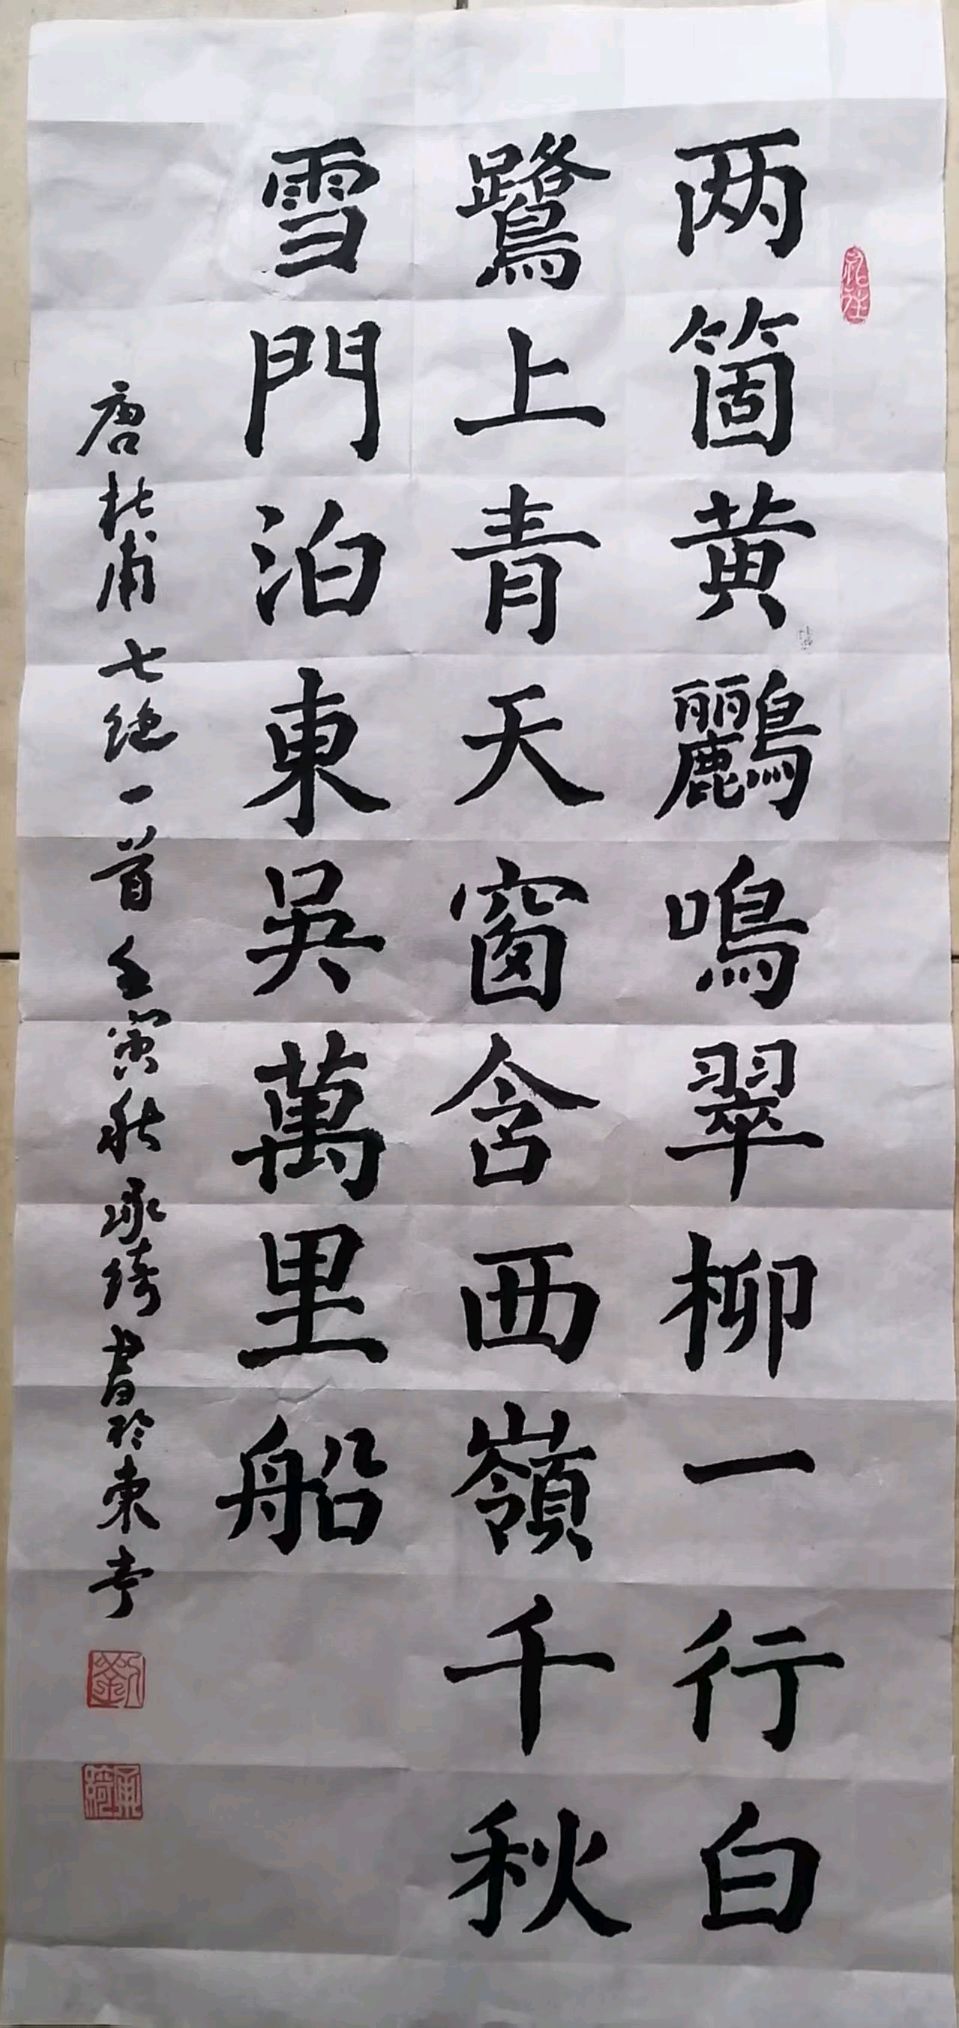 两箇黄鸝鳴翠柳一行白
鷺上青天窗含西嶺千秋
雪門泊東吳萬里船
唐杜甫七绝一首壬寅秋承绮書於東亭
劉
承綺